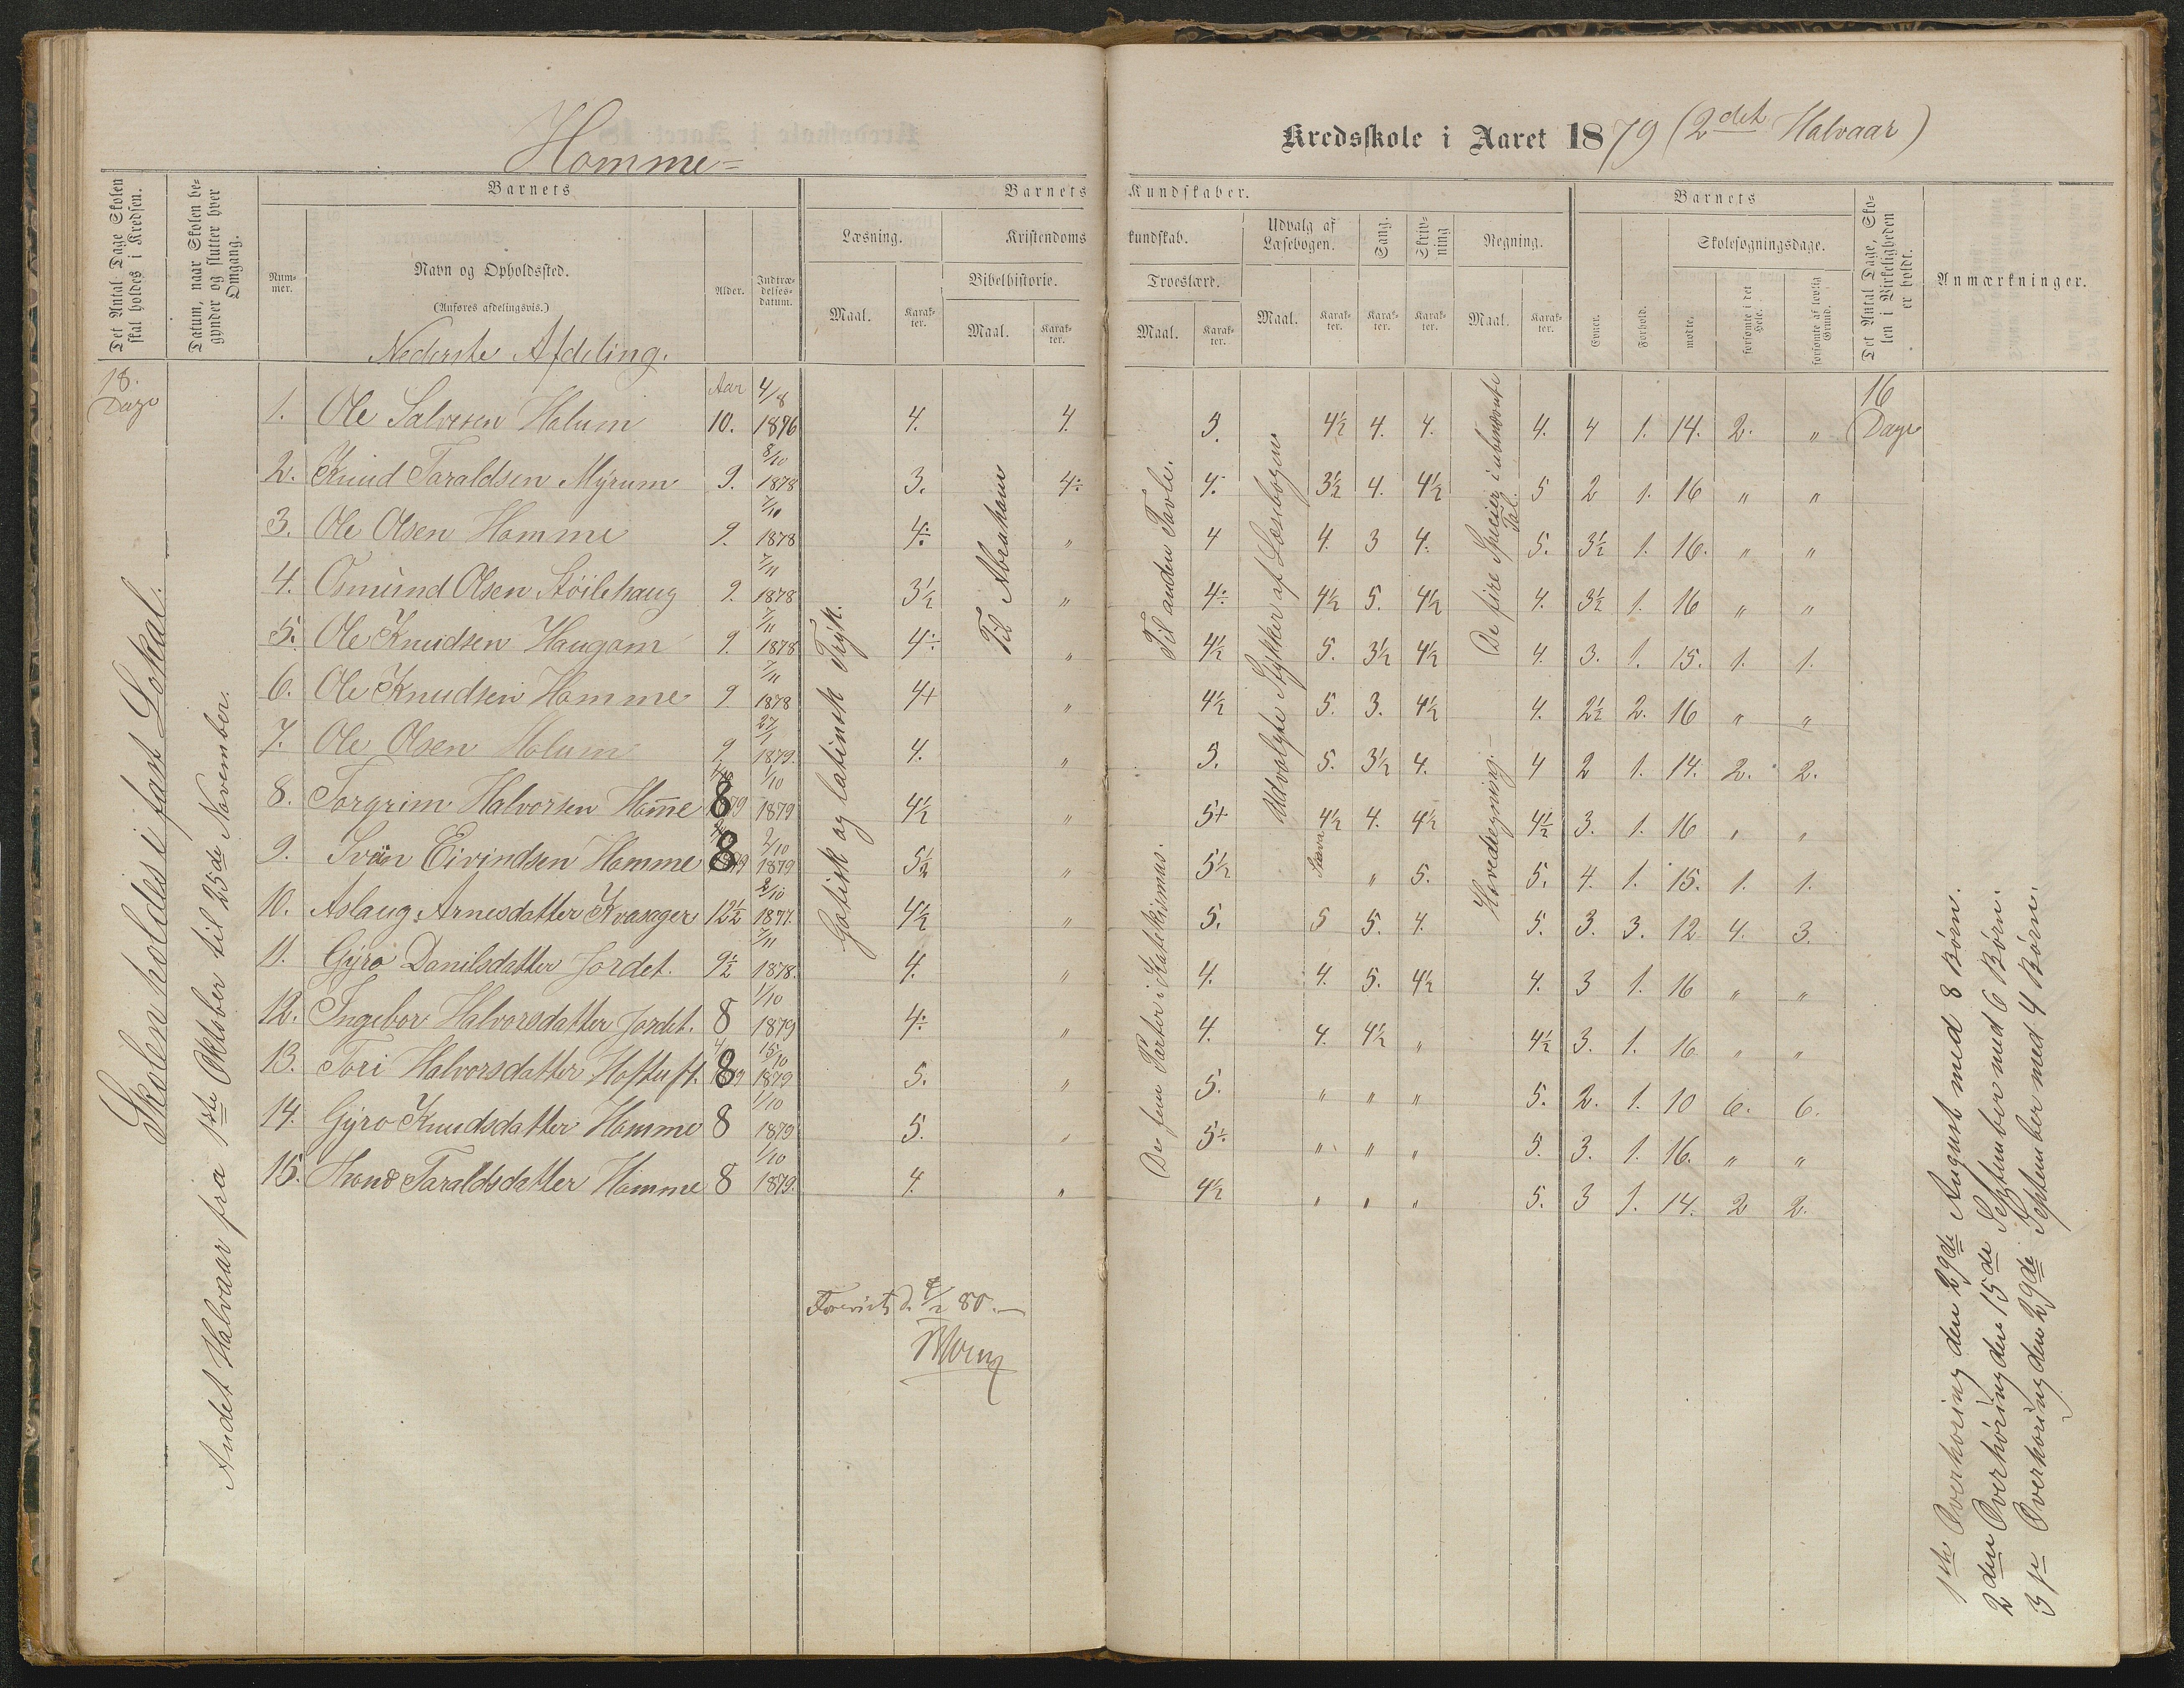 Homme=
Kredsskole i Aaret 1879 (2det Halvaar)
Det Antal Dage Skolen skal holdes i Kredsen.
Datum, naar Skolen begynder og slutter hver Omgang.
Barnets
Nummer.
Navn og Opholdssted.
(Anføres afdelingsvis.)
Alder.
Indtrædelsesdatum.
Barnets Kundskaber.
Læsning.
Maal.
Karakter.
Kristendomskundskab.
Bibelhistorie.
Maal.
Karakter.
Troeslære.
Maal.
Karakter.
Udvalg af Læsebogen.
Maal.
Karakter.
Sang.
Karakter.
Skrivning
Karakter.
Regning.
Maal.
Karakter.
Barnets
Evner.
Forhold.
Skolesøgningsdage.
mødte.
forsømte i det Hele.
forsømte af lovlig Grund.
Det Antal Dage, Skolen i Virkeligheden er holdt.
Anmærkninger.
Nederste Afdeling.
18. Dage
Skolen holdes i fast Lokal.
Andet Halvaar fra 1ste Oktober til 25de November.
Gotisk og latinsk Tryk.
Til Abraham
Til anden Tavle.
De fem Parter i Katekismus.
Udvalgte Stykker af Læsebogen
De fire Specier i ubenævnte Tal.
Hovedregning.
16 Dage
1. Ole Salvesen Holum Aar 10. 4/8 1876 4. 4. 5. 4½ 4. 4. 4. 4 1. 14. 2. "
2. Knud Taraldsen Myrum 9. 8/10 1878 3. 4÷ 4. 3½ 4. 4½ 5 2 1. 16 " "
3. Ole Olsen Homme 9. 7/10 1878 4÷ " 4 4. 3 4. 5. 3½ 1. 16. " "
4. Osmund Olsen Støilehaug 9. 7/11 1878 3½ " 4÷ 4½ 5. 4½ 4. 3½ 1. 16 " "
5. Ole Knudsen Haugom 9. 7/11 1878 4÷ " 4½ 5. 3½ 4½ 4. 3. 1. 15. 1. 1.
6. Ole Knudsen Homme 9 7/11 1878 4+ " 4½ 5. 3. 4½ 4. 2½ 2. 16 " "
7. Ole Olsen Holum 9 27/1 1879. 4. " 5. 5. 3½ 4. 4 2 1. 14. 2. 2.
8. Torgrim Halvorsen Hom̅e 8 1/10 1879 4½ " 5+ 4½ 4. 4½ 4½ 3. 1. 16 " "
9. Svein Eivindsen Homme 8 2/10 1879 5½ " 5½ " 5. 5. 4. 1. 15. 1. 1.
10. Aslaug Arnesdatter Kvasager 12½ 2/10 1877. 4½ " 5. 5 5. 4. 5. 3. 3. 12 4. 3.
11. Gyro Danilsdatter Jordet. 9½ 7/11 1878. 4. " 4. 4. 5. 4½ 4. 3 1. 16 " "
12. Ingebor Halvorsdatter Jordet. 8 1/10 1879 4÷ " 4. 4. 4½ " 4½ 3. 1. 16 " "
13. Tori Halvorsdatter Hoftuft. 8 15/10 1879 5. " 5. " " " 5. 2. 1. 10 6. 6.
14. Gyro Knudsdatter Homme 8 1/10 1879 5. " 5÷ " " " 5. 3. 1. 16. " "
15. Taraldsdatter Homme 8 1/10 1879. 4. " 4½ " " " 5. 3 1. 14. 2 2.
80.
1ste Overhøring den 29de August med 8 Børn.
2den Overhøring den 15de September med 6 Børn.
3je Overhøring den 29de September med 4 Børn.